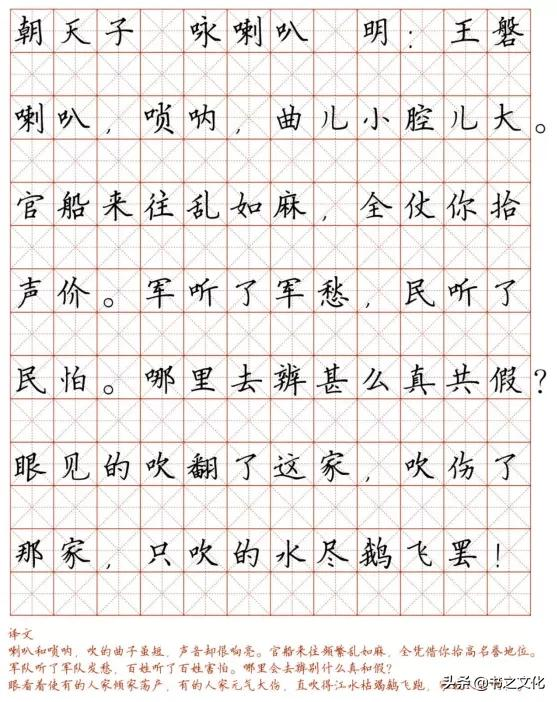 朝天子 咏喇叭 明：王磐
喇叭，唢呐，曲儿小腔儿大。
官船来往乱如麻，全仗你抬
声价。军听了军愁，民听了
民怕。哪里去辨甚么真共假？
眼见的吹翻了这家，吹伤了
那家，只吹的水尽鹅飞罢！
译文
喇叭和唢呐，吹的曲子虽短，声音却很响亮。官船来往频繁乱如麻，全凭借你抬高名誉地位。
军队听了军队发愁，百姓听了百姓害怕。哪里会去辨别什么真和假？
眼看着使有的人家倾家荡产，有的人家元气大伤，直吹得江水枯竭鹅飞跑，
头条 @书之文化